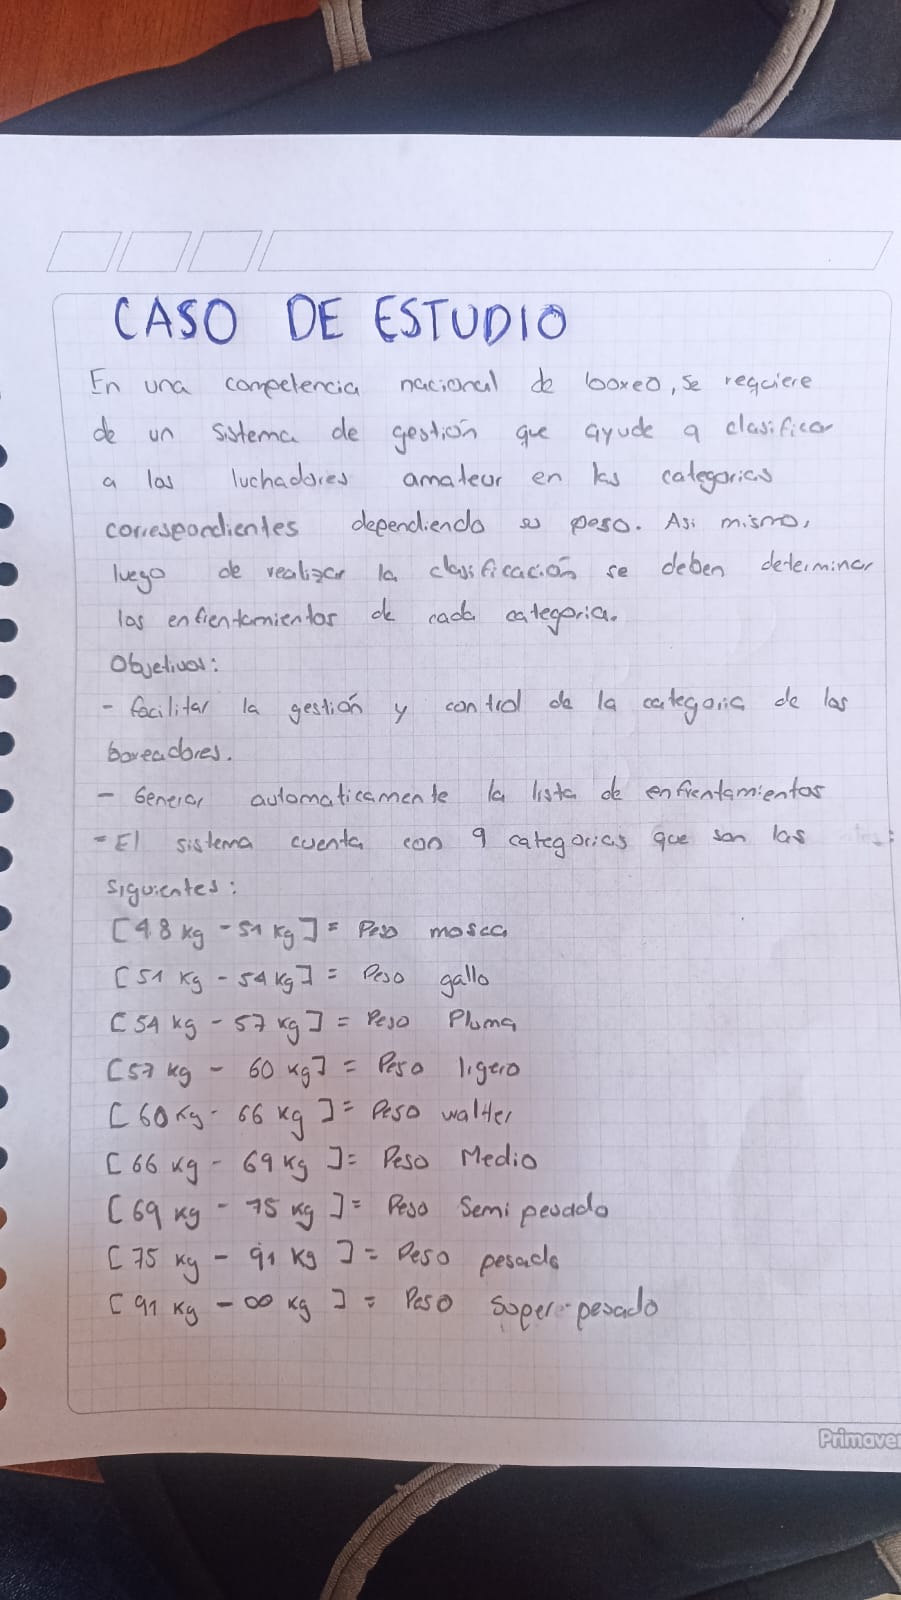 CASO DE ESTUDIO
En una competencia nacional de boxeo, se requiere
de un sistema de gestión que ayude a clasificar
a los luchadores amateur en las categorias
correspondientes dependiendo su peso. Asi mismo,
luego de realizar la clasificación se deben determinar
los enfrentamientos de cada categoria.
Objetivos:
- facilitar la gestión y control de la categoria de los
boxeadores.
- Generar automaticamente la lista de enfrentamientos
- El sistema cuenta con 9 categorias que son las
siguientes:
[48 kg - 51 kg] = Peso mosca
[51 kg - 54 kg] = Peso gallo
[54 kg - 57 kg] = Peso Pluma
[57 kg - 60 kg] = Peso ligero
[60 kg - 66 kg] = Peso walter
[66 kg - 69 kg] = Peso Medio
[69 kg - 75 kg] = Peso Semi pesado
[75 kg - 91 kg] = Peso pesado
[91 kg - ∞ kg] = Peso super-pesado